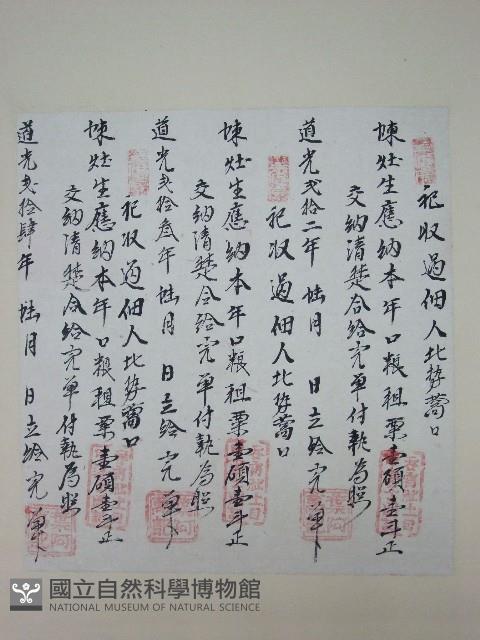 記収過佃人北勢蒿口
陳灶生應納本年口粮租粟壹碩壹斗正
交納清楚合給完单付執為照
道光弍拾二年 陆月 日立給完单
記収過佃人北勢蒿口
陳灶生應納本年口粮租粟壹碩壹斗正
交納清楚合給完单付執為照
道光弍拾叁年 陆月 日立給完单
記収過佃人北勢蒿口
陳灶生應納本年口粮租粟壹碩壹斗正
交納清楚合給完单付執為照
道光弍拾肆年 陆月 日立給完单
國立自然科學博物館
NATIONAL MUSEUM OF NATURAL SCIENCE